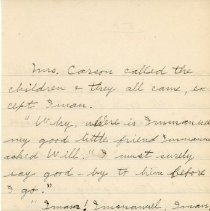 Mrs. Carson called the
children & they all came, ex
cept Iman.
"Why, where is Immanue
my good little friend Immanu
asked Will. "I must surely
say good-by to him before
I go."
"Iman! Immanuel, Iman